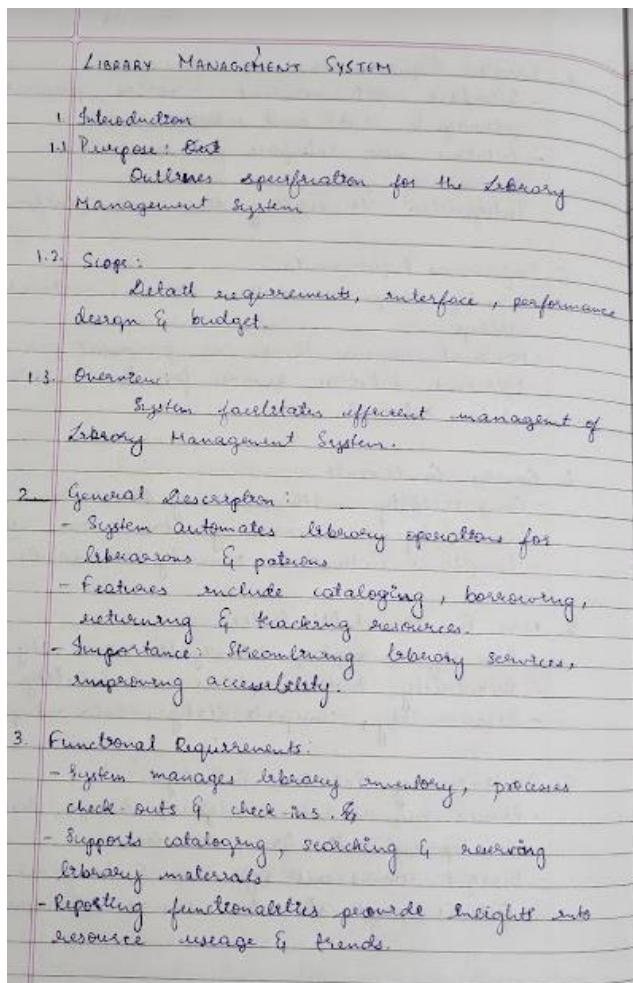 LIBRARY MANAGEMENT SYSTEM
1. Introduction
1.1 Purpose:
Outlines specification for the Library
Management System
1.2. Scope:
Detail requirements, interface, performance
design & budget.
1.3. Overview:
System facilitates efficient managment of
Library Management System.
2. General Description:
- System automates library operations for
librarians & patrons
- Features include cataloging, borrowing,
returning & tracking resources.
- Importance: Streamlining library services,
improving accessibility.
3. Functional Requirements:
- System manages library inventory, processes
check-outs & check-ins.
- Supports cataloging, searching & reserving
library materials
- Reporting functionalities provide insights into
resource useage & trends.